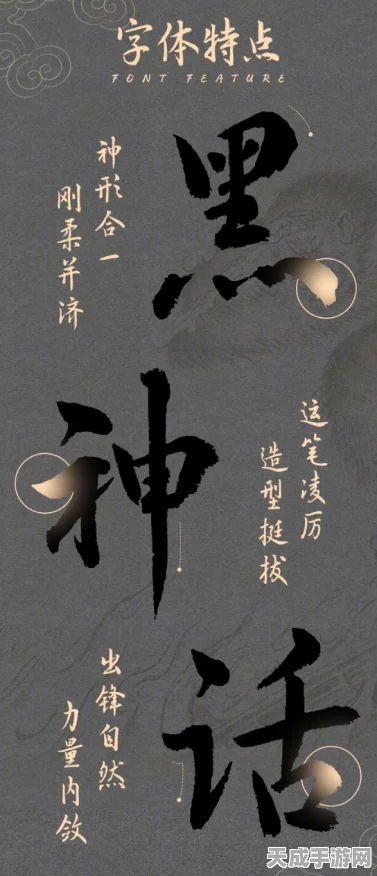 字体特点
FONT FEATURE
黑
神形合一
刚柔并济
神
运笔凌厉
造型挺拔
话
出锋自然
力量内敛
天成手游网